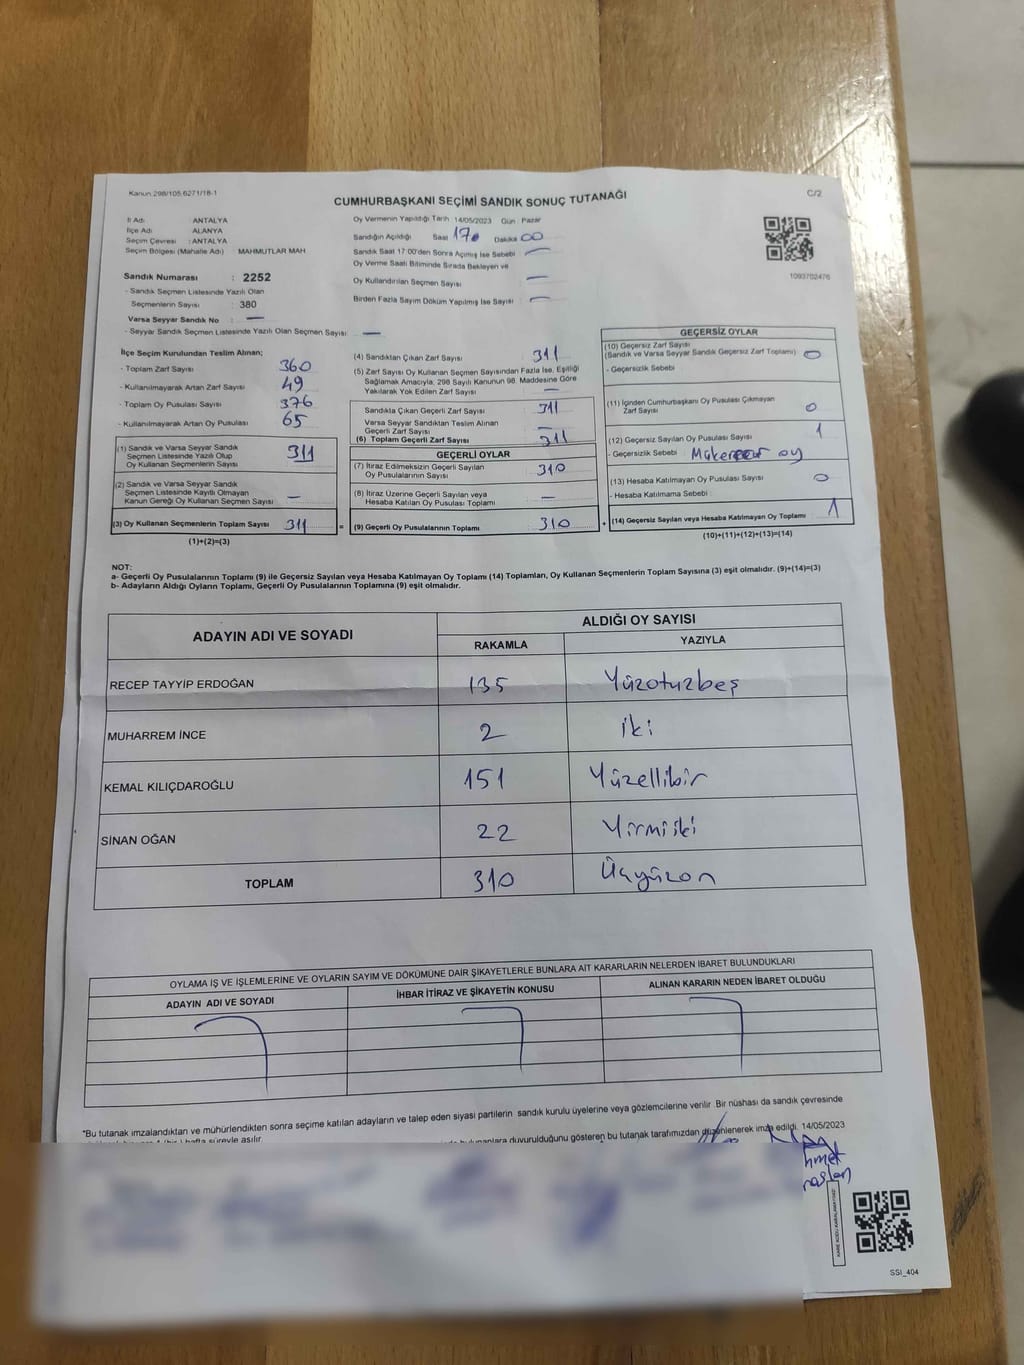 Kanun 298/105,6271/18-1
CUMHURBAŞKANI SEÇİMİ SANDIK SONUÇ TUTANAĞI
C/2
İl Adı : ANTALYA
İlçe Adı : ALANYA
Seçim Çevresi : ANTALYA
Seçim Bölgesi (Mahalle Adı) : MAHMUTLAR MAH
Sandık Numarası : 2252
- Sandık Seçmen Listesinde Yazılı Olan
Seçmenlerin Sayısı : 380
Varsa Seyyar Sandık No : —
- Seyyar Sandık Seçmen Listesinde Yazılı Olan Seçmen Sayısı: —
Oy Vermenin Yapıldığı Tarih : 14/05/2023 Gün : Pazar
Sandığın Açıldığı Saat 17. Dakika 00
Sandık Saat 17:00'den Sonra Açılmış İse Sebebi : —
Oy Verme Saati Bitiminde Sırada Bekleyen ve
Oy Kullandırılan Seçmen Sayısı : —
Birden Fazla Sayım Döküm Yapılmış İse Sayısı : —
1093702476
İlçe Seçim Kurulundan Teslim Alınan;
- Toplam Zarf Sayısı : 360
- Kullanılmayarak Artan Zarf Sayısı : 49
- Toplam Oy Pusulası Sayısı : 376
- Kullanılmayarak Artan Oy Pusulası : 65
(1) Sandık ve Varsa Seyyar Sandık
Seçmen Listesinde Yazılı Olup
Oy Kullanan Seçmenlerin Sayısı : 311
(2) Sandık ve Varsa Seyyar Sandık
Seçmen Listesinde Kayıtlı Olmayan
Kanun Gereği Oy Kullanan Seçmen Sayısı : —
(3) Oy Kullanan Seçmenlerin Toplam Sayısı : 311 =
(1)+(2)=(3)
(4) Sandıktan Çıkan Zarf Sayısı : 311
(5) Zarf Sayısı Oy Kullanan Seçmen Sayısından Fazla İse, Eşitliği
Sağlamak Amacıyla, 298 Sayılı Kanunun 98. Maddesine Göre
Yakılarak Yok Edilen Zarf Sayısı : —
Sandıkta Çıkan Geçerli Zarf Sayısı : 311
Varsa Seyyar Sandıktan Teslim Alınan
Geçerli Zarf Sayısı : —
(6) Toplam Geçerli Zarf Sayısı : 311
GEÇERLİ OYLAR
(7) İtiraz Edilmeksizin Geçerli Sayılan
Oy Pusulalarının Sayısı : 310
(8) İtiraz Üzerine Geçerli Sayılan veya
Hesaba Katılan Oy Pusulası Toplamı : —
(9) Geçerli Oy Pusulalarının Toplamı : 310 +
GEÇERSİZ OYLAR
(10) Geçersiz Zarf Sayısı
(Sandık ve Varsa Seyyar Sandık Geçersiz Zarf Toplamı) : 0
- Geçersizlik Sebebi
(11) İçinden Cumhurbaşkanı Oy Pusulası Çıkmayan
Zarf Sayısı : 0
(12) Geçersiz Sayılan Oy Pusulası Sayısı : 1
- Geçersizlik Sebebi : Mükerrer oy
(13) Hesaba Katılmayan Oy Pusulası Sayısı : 0
- Hesaba Katılmama Sebebi :
(14) Geçersiz Sayılan veya Hesaba Katılmayan Oy Toplamı : 1
(10)+(11)+(12)+(13)=(14)
NOT:
a- Geçerli Oy Pusulalarının Toplamı (9) ile Geçersiz Sayılan veya Hesaba Katılmayan Oy Toplamı (14) Toplamları, Oy Kullanan Seçmenlerin Toplam Sayısına (3) eşit olmalıdır. (9)+(14)=(3)
b- Adayların Aldığı Oyların Toplamı, Geçerli Oy Pusulalarının Toplamına (9) eşit olmalıdır.
ADAYIN ADI VE SOYADI ALDIĞI OY SAYISI
RAKAMLA YAZIYLA
RECEP TAYYİP ERDOĞAN 135 Yüzotuzbeş
MUHARREM İNCE 2 iki
KEMAL KILIÇDAROĞLU 151 Yüzellibir
SİNAN OĞAN 22 Yirmiiki
TOPLAM 310 Üçyüzon
OYLAMA İŞ VE İŞLEMLERİNE VE OYLARIN SAYIM VE DÖKÜMÜNE DAİR ŞİKAYETLERLE BUNLARA AİT KARARLARIN NELERDEN İBARET BULUNDUKLARI
ADAYIN ADI VE SOYADI İHBAR İTİRAZ VE ŞİKAYETİN KONUSU ALINAN KARARIN NEDEN İBARET OLDUĞU
*Bu tutanak imzalandıktan ve mühürlendikten sonra seçime katılan adayların ve talep eden siyasi partilerin sandık kurulu üyelerine veya gözlemcilerine verilir. Bir nüshası da sandık çevresinde
duyurulduğunu gösteren bu tutanak tarafımızdan düzenlenerek imza edildi. 14/05/2023
KARE KODU KARALAMAYINIZ
SSI_404